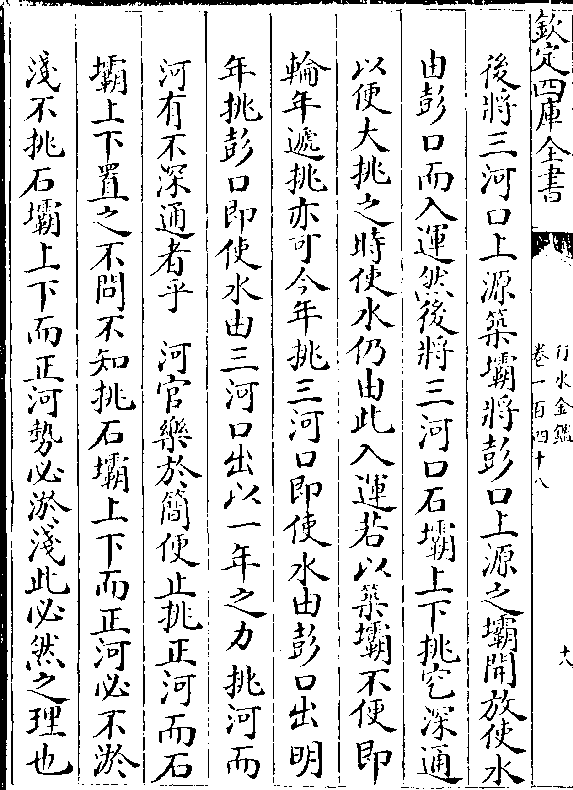 欽定四庫全書
行水金鑑
卷一百四十八
十八
後將三河口上源築壩將彭口上源之壩開放使水
由彭口而入運然後將三河口石壩上下挑空深通
以便大挑之時使水仍由此入運若以築壩不便即
輪年遞挑亦可今年挑三河口即使水由彭口出明
年挑彭口即使水由三河口出以一年之力挑河而
河有不深通者乎　河官樂於簡便止挑正河而石
壩上下置之不問不知挑石壩上下而正河必不淤
淺不挑石壩上下而正河勢必淤淺此必然之理也